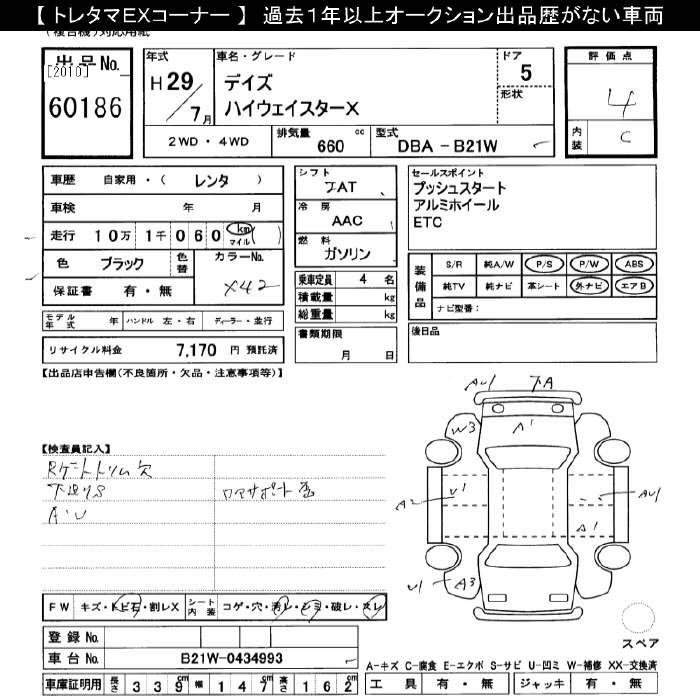 【 トレタマEXコーナー 】 過去1年以上オークション出品歴がない車両
(複合機)対応用紙
出品No.
[2010]
60186
年式
H 29
/ 7 月
車名・グレード
デイズ
ハイウェイスターX
ドア
5
形状
2WD ・ 4WD
排気量 660 cc
型式 DBA - B21W
評価点
4
内装 C
車歴 自家用・( レンタ )
車検 年 月
走行 10万 1千 0 6 0 km マイル ( )
色 ブラック 色替 カラーNo.
X42
保証書 有・無
モデル年式 年 ハンドル 左・右 ディーラー・並行
リサイクル料金 7,170 円 預託済
シフト
IAT
冷房
AAC
燃料
ガソリン
乗車定員 4 名
積載量 kg
総重量 kg
書類期限
月 日
セールスポイント
プッシュスタート
アルミホイール
ETC
装備品
S/R 純A/W P/S P/W ABS
純TV 純ナビ 革シート 外ナビ エアB
ナビ型番：
後日品
【出品店申告欄(不良箇所・欠品・注意事項等)】
【検査員記入】
Rゲートトリム欠
下廻りS
コアサポート歪
A・U
AU1
下A
W3
A1
A2
U1
AU1
A1
U1
A3
FW キズ・トビ石・割レX
シート内装 コゲ・穴・汚レ・シミ・破レ・スレ
登録 No.
車台 No. B21W-0434993
車庫証明用 長さ 3 3 9 cm 幅 1 4 7 cm 高さ 1 6 2 cm
スペア
A-キズ C-腐食 E-エクボ S-サビ U-凹ミ W-補修 XX-交換済
工具 有・無 ジャッキ 有・無